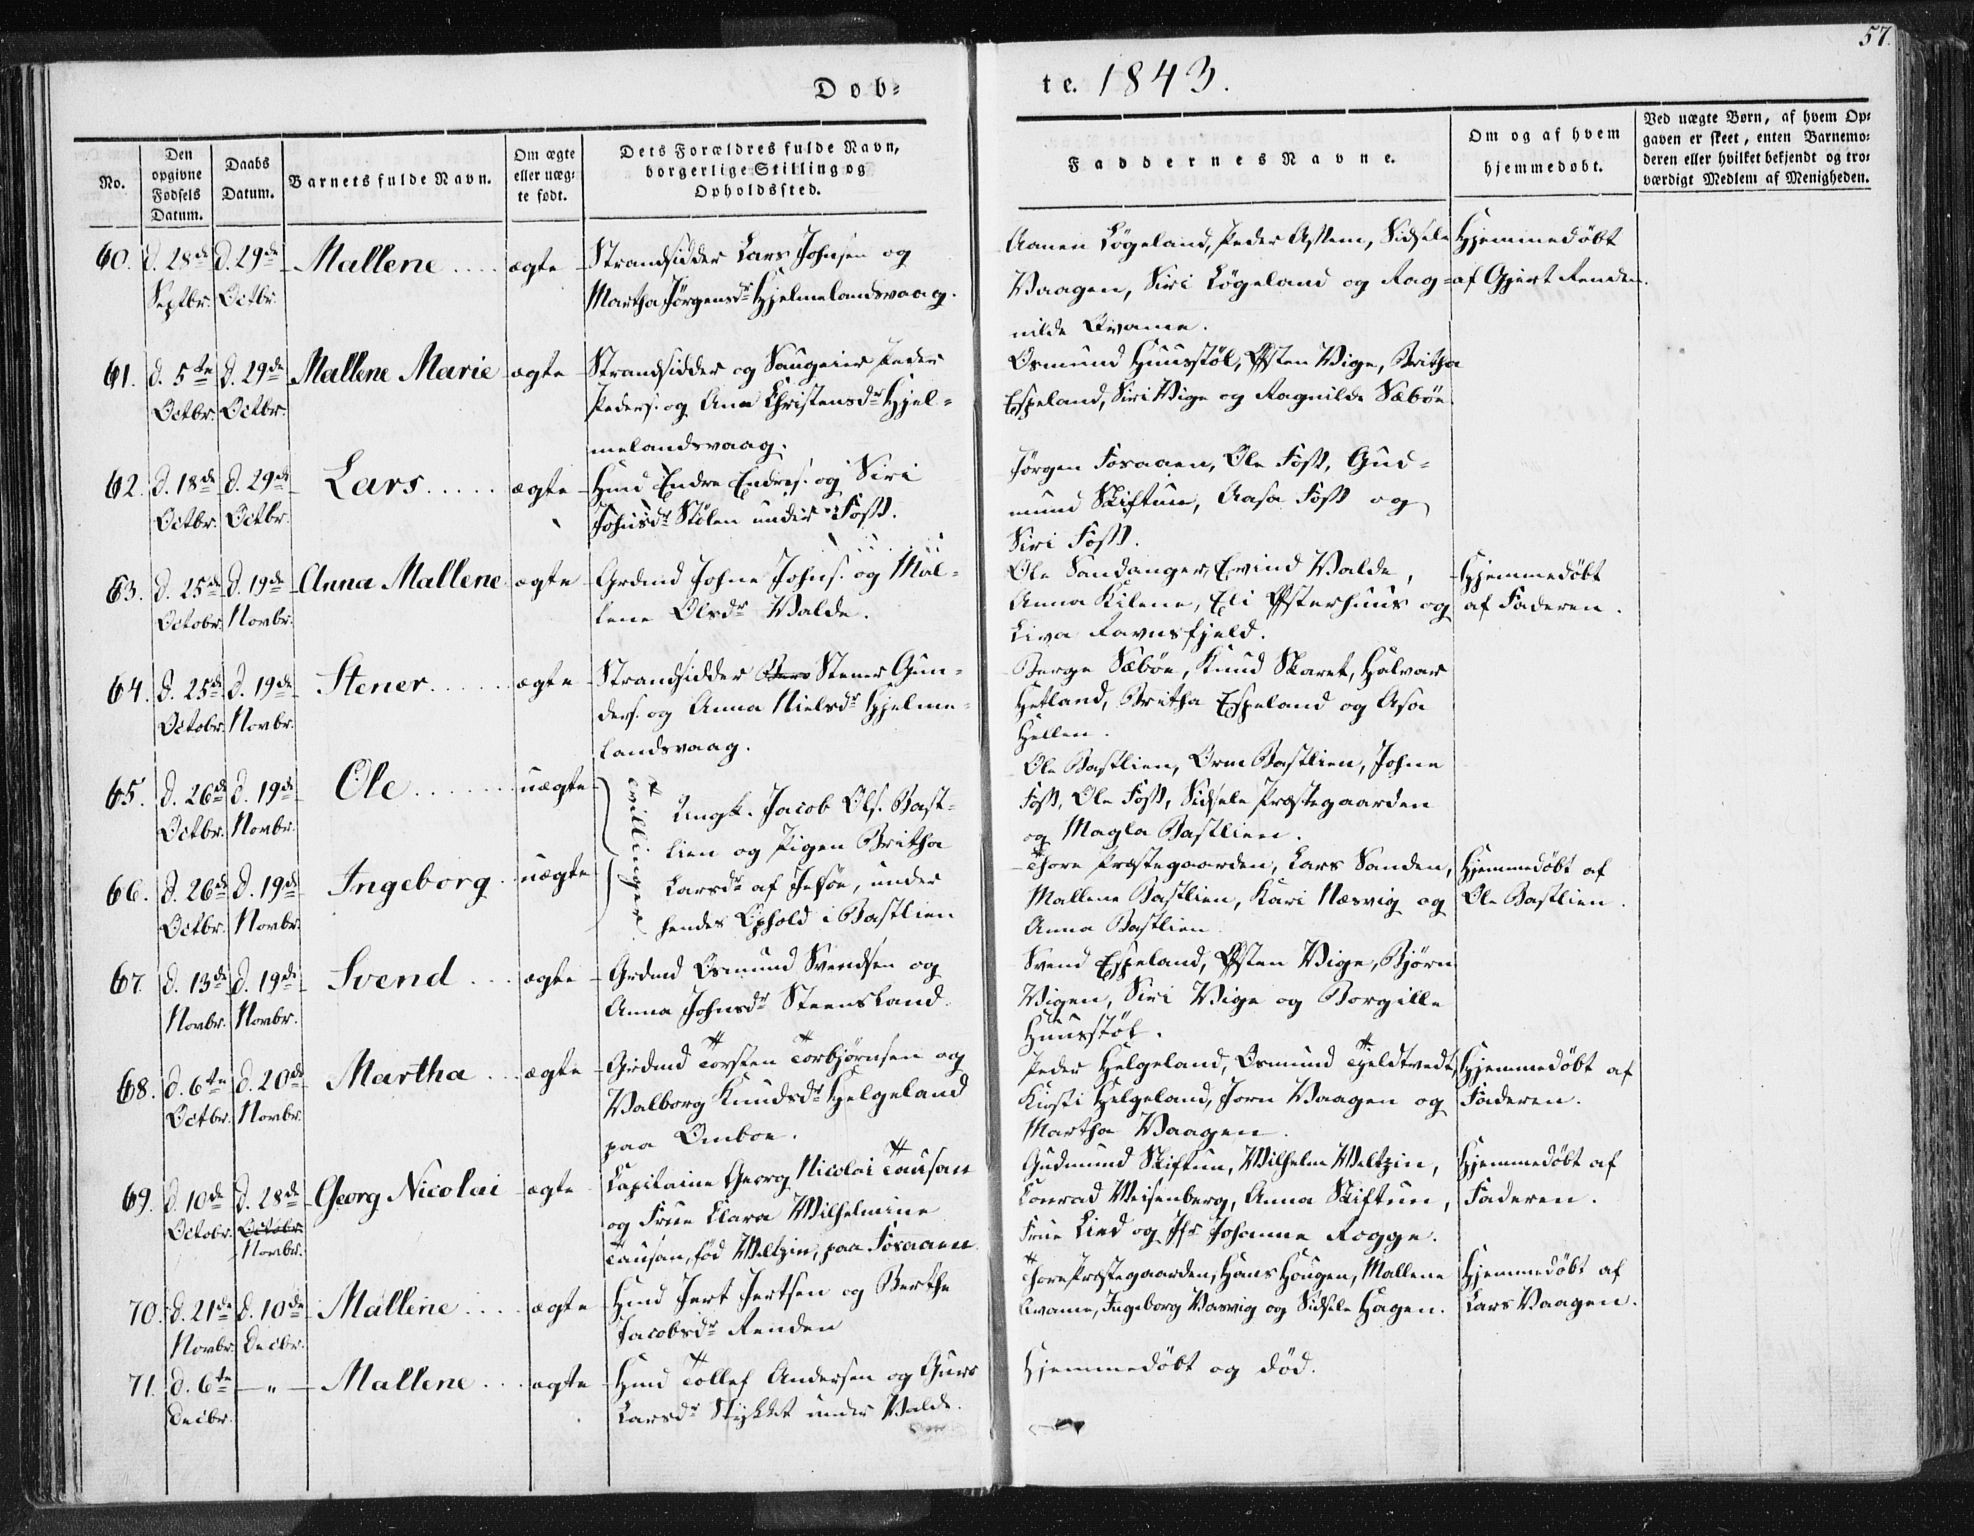 57.
Døb-
te. 1843.
No.
Den opgivne Fødsels Datum.
Daabs Datum.
Barnets fulde Navn.
Om ægte eller uæg-
te født.
Dets Forældres fulde Navn,
borgerlige Stilling og
Opholdssted.
Faddernes Navne.
Om og af hvem
hjemmedøbt.
Ved uægte Børn, af hvem Op-
gaven er skeet, enten Barnemo-
deren eller hvilket bekjendt og tro-
værdigt Medlem af Menigheden.
60. d. 28de Septbr. d. 29de Octbr. Mallene.... ægte
Strandsidder Lars Johnsen og
Martha Jørgensdr Hjelmelandsvaag.
Aanen Løgeland, Peder Astem, Sidsele
Vaagen, Siri Løgeland og Rag-
nilde Qvame.
Hjemmedøbt
af Gjert Renden.
61. d. 5te Octbr. d. 29de Octbr. Mallene Marie ægte
Strandsidder og Peder
Peders. og Ane Christensdr Hjel-
melandsvaag.
Osmund Huusstøl, Østen Vige, Britha
Espeland, Siri Vige og Ragnilde Sæbøe.
62. d. 18de Octbr. d. 29de Octbr. Lars..... ægte
Hmd Endre Endres. og Siri
Johnsdr Stølen under Foss.
Jørgen Fosaaen, Ole Foss, Gud-
mund Skiftun, Aasa Foss og
Siri Foss.
63. d. 25de Octobr. d. 19de Novbr. Anna Mallene ægte
Grdmd Johne Johns. og Mal-
lene Olsdr Valde.
Ole Sandanger, Evind Valde,
Anna Kilene, Eli Østerhuus og
Liva Ravnsfjeld.
Hjemmedøbt
af Faderen.
64. d. 25de Octobr. d. 19de Novbr. Stener...... ægte
Strandsidder Stener Gun-
ders. og Anna Nielsdr Hjelme-
landsvaag.
Berge Sæbøe, Knud Skaret, Halvar
Hetland, Britha Espeland og Asa
Hellen.
65. d. 26de Octbr. d. 19de Novbr. Ole...... uægte
Tvillinger.
Ungk. Jacob Ols. Bast-
lien og Pigen Britha
Larsdr af Jelsøe, under
hendes Ophold i Bastlien
Ole Bastlien, Orm Bastlien, Johne
Foss, Ole Foss, Sidsele Præstegaarden
og Magla Bastlien.
66. d. 26de Octbr. d. 19de Novbr. Ingeborg. uægte
Thore Præstegaarden, Lars Sanden,
Mallene Bastlien, Kari Næsvig og
Anna Bastlien.
Hjemmedøbt af
Ole Bastlien.
67. d. 13de Novbr. d. 19de Novbr. Svend... ægte
Grdmd Osmund Svendsen og
Anna Johnsdr Steensland.
Svend Espeland, Østen Vige, Bjørn
Vigen, Siri Vige og Borgille
Huusstøl.
68. d. 6te Octbr. d. 20de Novbr. Martha... ægte
Grdmd Torsten Torbjørnsen og
Valborg Knudsdr Helgeland
paa Omboe.
Peder Helgeland, Osmund Tjeldtvedt,
Kirsti Helgeland, Jorn Vaagen og
Martha Vaagen.
Hjemmedøbt af
Faderen.
69. d. 10de Octobr. d. 28de Octobr. Novbr. Georg Nicolai ægte
Capitaine Georg Nicolai Tausan
og Frue Clara Wilhelmine
Tausan, fød Weltzin, paa Fosaaen
Gudmund Skiftun, Wilhelm Weltzin,
Conrad Meisenberg, Anna Skiftun,
Frue Lied og Jfr Johanna Rogge.
Hjemmedøbt af
Faderen.
70. d. 21de Novbr. d. 10de Decbr. Mallene.... ægte
Hmd Jert Jertsen og Berthe
Jacobsdr Renden
Thore Præstegaarden, Hans Hougen, Mallene
Qvame, Ingeborg Vasvig og Sidsele Hagen.
Hjemmedøbt af
Lars Vaagen.
71. d. 6te Decbr. — " — Mallene... ægte
Hmd Tollef Andersen og Guro
Larsdr Stykket under Valde.
Hjemmedøbt og død.